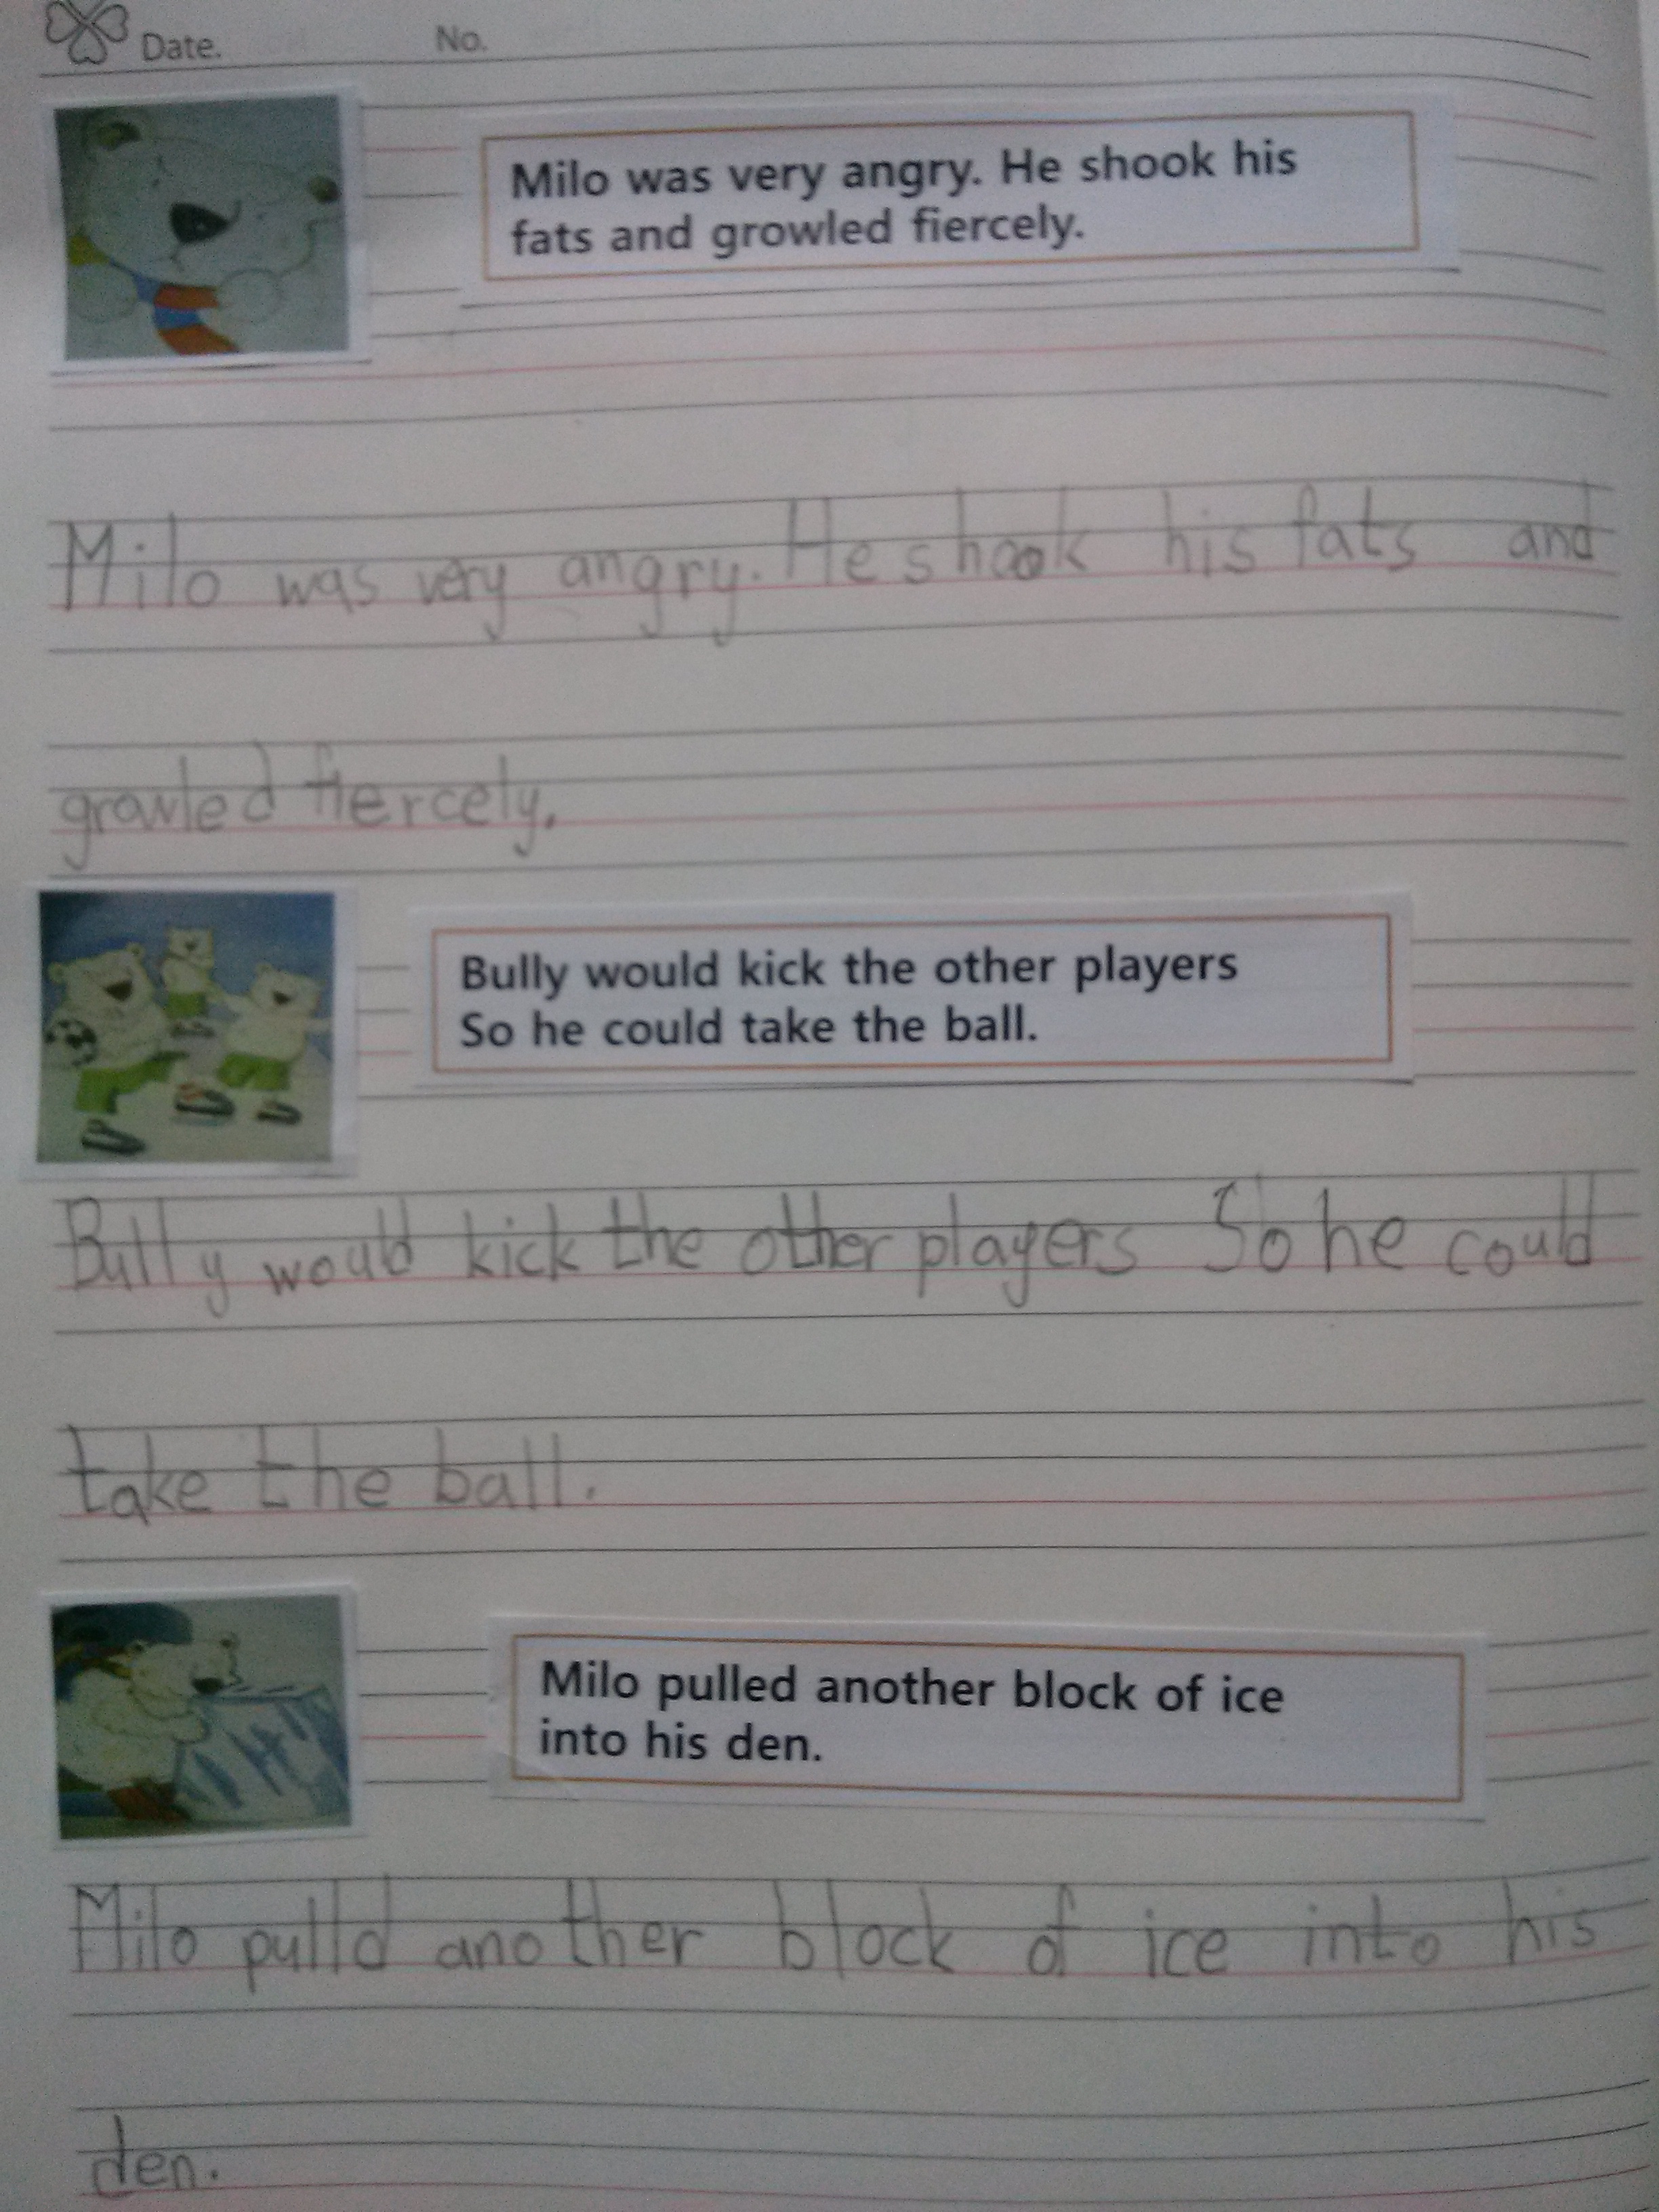 Date. No.
Milo was very angry. He shook his
fats and growled fiercely.
Milo was very angry. He shook his fats and
growled fiercely.
Bully would kick the other players
So he could take the ball.
Bully would kick the other players So he could
take the ball.
Milo pulled another block of ice
into his den.
Milo pulld another block of ice into his
den.